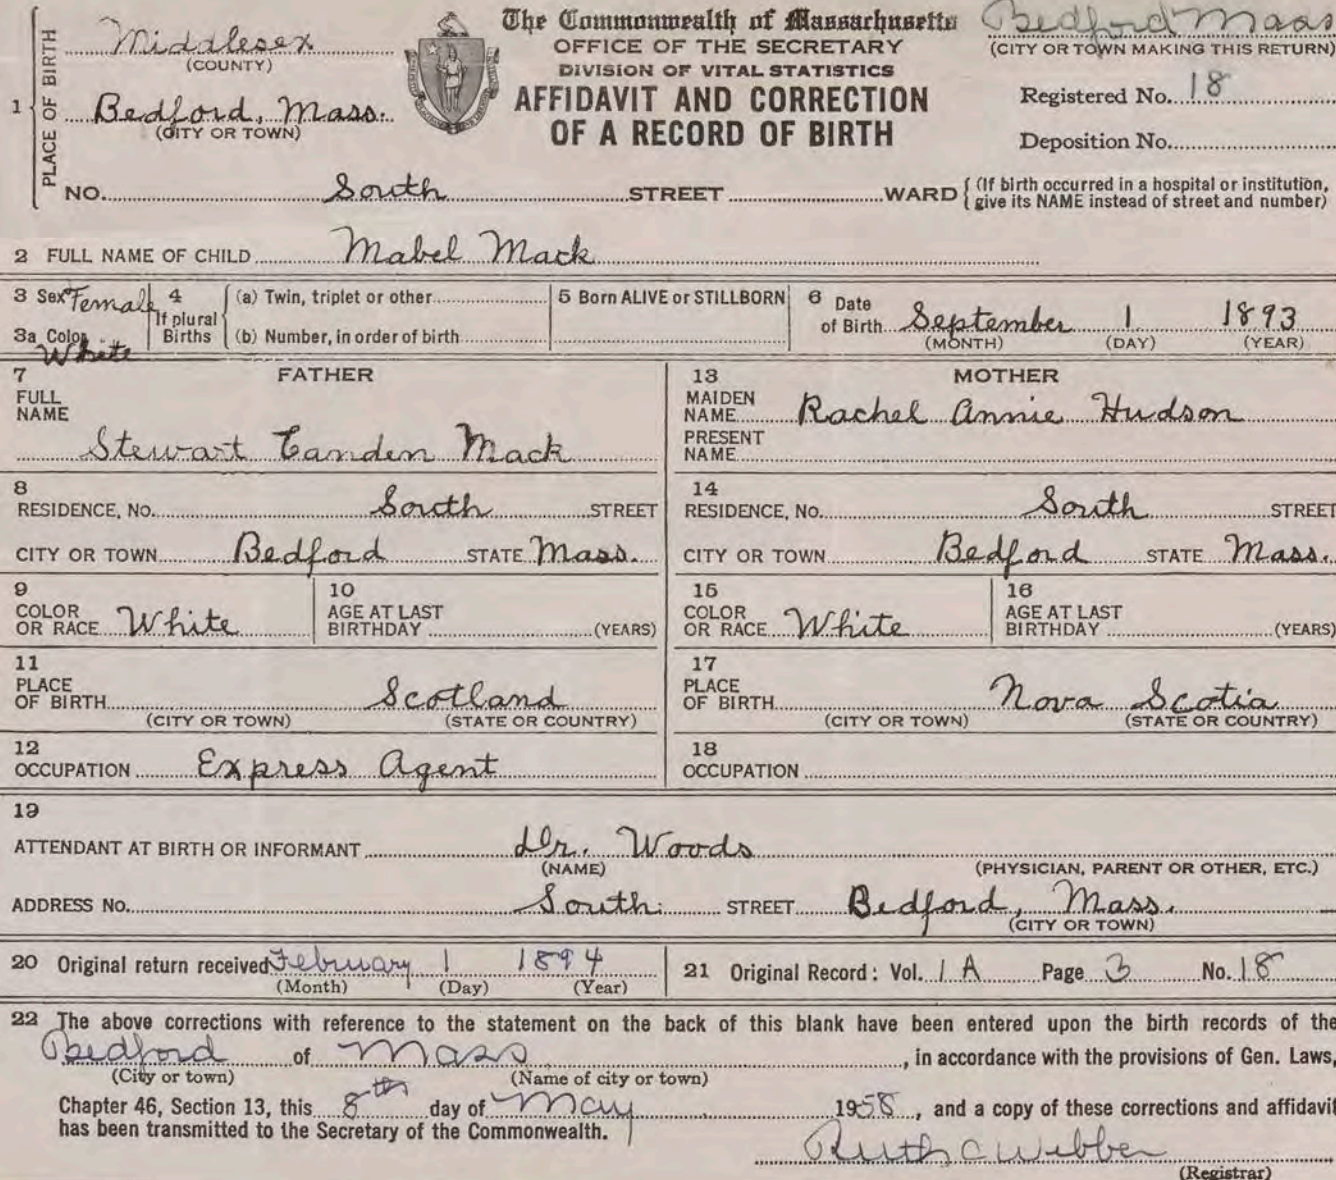 The Commonwealth of Massachusetts
OFFICE OF THE SECRETARY
DIVISION OF VITAL STATISTICS
AFFIDAVIT AND CORRECTION
OF A RECORD OF BIRTH
Bedford Mass
(CITY OR TOWN MAKING THIS RETURN)
Registered No. 18
Deposition No.
1 PLACE OF BIRTH
Middlesex
(COUNTY)
Bedford, Mass.
(CITY OR TOWN)
NO. South STREET WARD {(If birth occurred in a hospital or institution, give its NAME instead of street and number)
2 FULL NAME OF CHILD Mabel Mack
3 Sex Female
3a Color White
4 If plural Births
(a) Twin, triplet or other
(b) Number, in order of birth
5 Born ALIVE or STILLBORN
6 Date of Birth September 1 1893
(MONTH) (DAY) (YEAR)
7 FATHER
FULL NAME
Stewart Canden Mack
8
RESIDENCE, No. South STREET
CITY OR TOWN Bedford STATE Mass.
9
COLOR OR RACE White
10
AGE AT LAST BIRTHDAY (YEARS)
11
PLACE OF BIRTH Scotland
(CITY OR TOWN) (STATE OR COUNTRY)
12
OCCUPATION Express Agent
13 MOTHER
MAIDEN NAME Rachel Annie Hudson
PRESENT NAME
14
RESIDENCE, No. South STREET
CITY OR TOWN Bedford STATE Mass.
15
COLOR OR RACE White
16
AGE AT LAST BIRTHDAY (YEARS)
17
PLACE OF BIRTH Nova Scotia
(CITY OR TOWN) (STATE OR COUNTRY)
18
OCCUPATION
19
ATTENDANT AT BIRTH OR INFORMANT Dr. Woods
(NAME) (PHYSICIAN, PARENT OR OTHER, ETC.)
ADDRESS No. South STREET Bedford, Mass.
(CITY OR TOWN)
20 Original return received February 1 1894
(Month) (Day) (Year)
21 Original Record: Vol. 1 A Page 3 No. 18
22 The above corrections with reference to the statement on the back of this blank have been entered upon the birth records of the
Bedford of Mass, in accordance with the provisions of Gen. Laws,
(City or town) (Name of city or town)
Chapter 46, Section 13, this 8th day of May 1958, and a copy of these corrections and affidavit
has been transmitted to the Secretary of the Commonwealth.
Ruth C Webber
(Registrar)